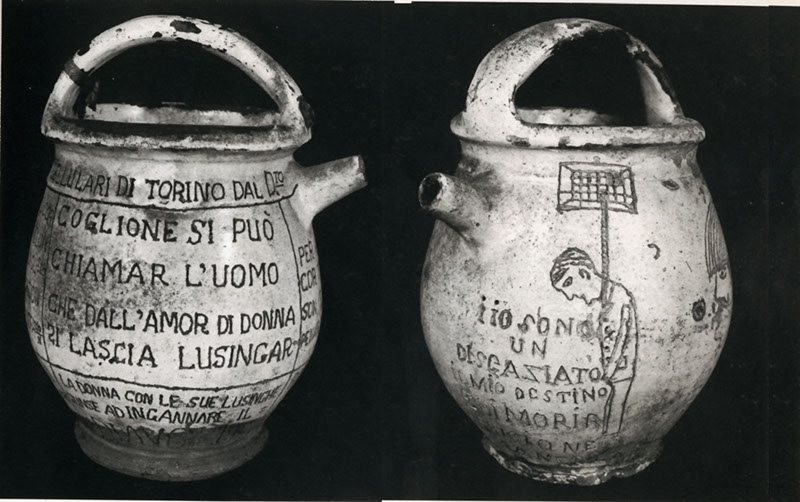 LULARI DI TORINO DAL Dto
COGLIONE SI PUÒ
CHIAMAR L'UOMO
CHE DALL'AMOR DI DONNA
SI LASCIA LUSINGAR
PER
COR
SON
LA DONNA CON LE SUE LUSINGHE
AD INGANNARE IL
iio SONO
UN
DISGAZIATO
IL MIO DESTINO
MORIR